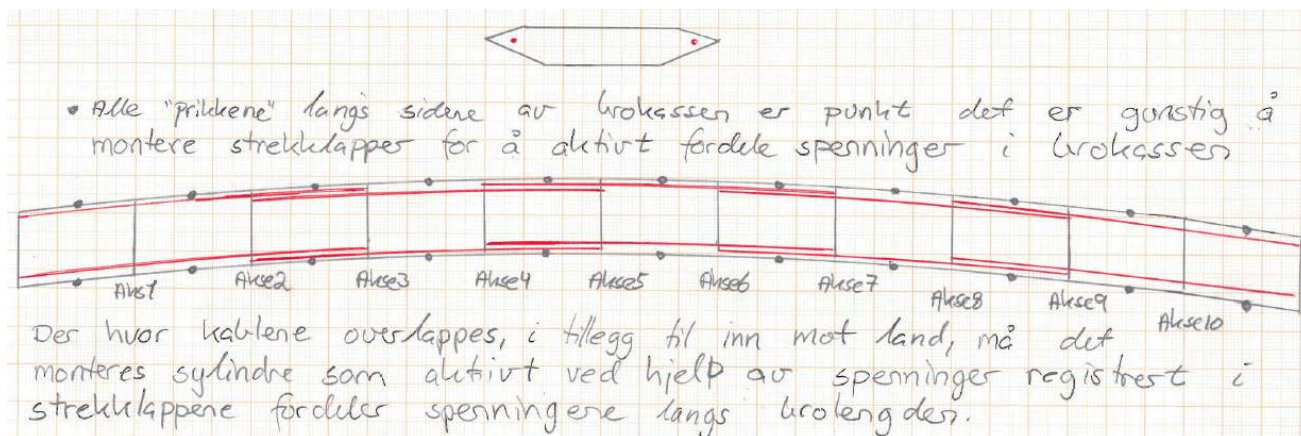 • Alle "prikkene" langs sidene av brokassen er punkt det er gunstig å
montere strekklapper for å aktivt fordele spenninger i brokassen
Akse1 Akse2 Akse3 Akse4 Akse5 Akse6 Akse7 Akse8 Akse9 Akse10
Der hvor kablene overlappes, i tillegg til inn mot land, må det
monteres sylindre som aktivt ved hjelp av spenninger registrert i
strekklappene fordeler spenningene langs brolengden.